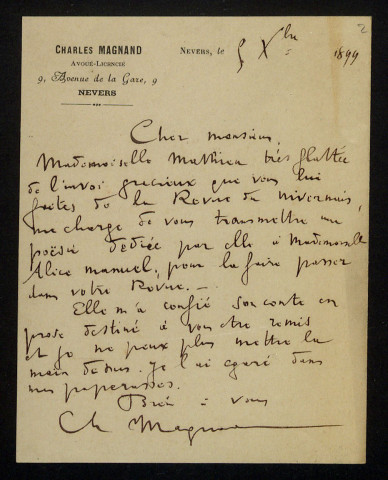 2
CHARLES MAGNAND
AVOUÉ-LICENCIÉ
9, Avenue de la Gare, 9
NEVERS
NEVERS, le 5 Xbre 1899
Cher monsieur,
Mademoiselle Mathieu très flattée
de l'envoi gracieux que vous lui
faites de la Revue du nivernais,
me charge de vous transmettre une
poësie dédiée par elle à Mademoiselle
Alice manuel, pour la faire passer
dans votre Revue. —
Elle m'a confié son conte en
prose destiné à vous être remis
et je ne peux plus mettre la
main dessus. Je l'ai égaré dans
mes paperasses.
Bien à vous
Ch Magnand